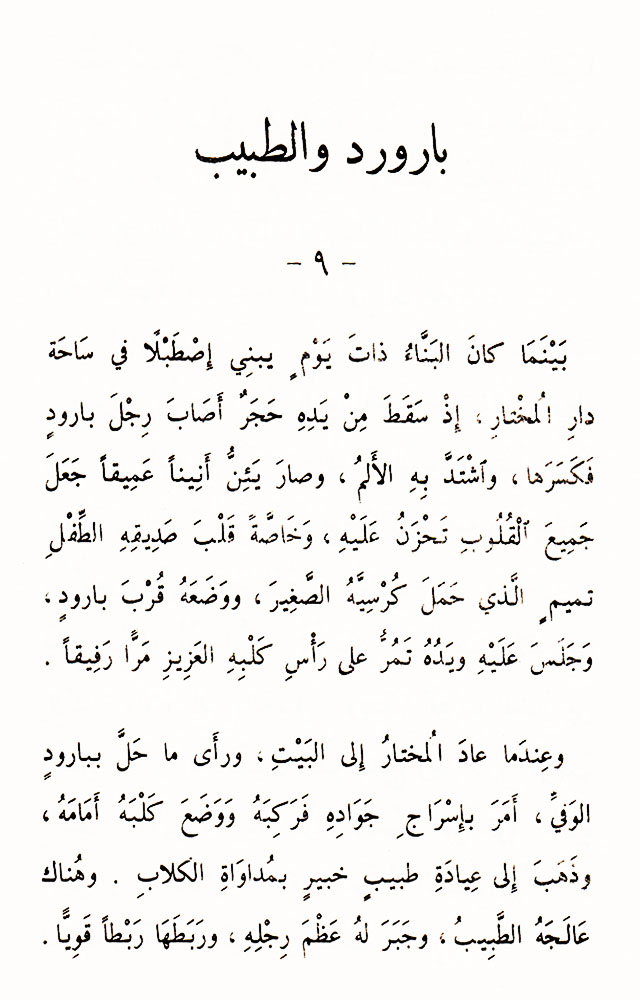 بارورد والطبيب
- ٩ -
بَيْنَمَا كانَ البَنَّاءُ ذاتَ يَوْمٍ يبنِي إِصْطَبْلًا في سَاحَة
دارِ المُخْتارِ، إِذْ سَقَطَ مِنْ يَدِهِ حَجَرٌ أَصَابَ رِجْلَ بارودٍ
فَكَسَرَها، وٱشْتَدَّ بِهِ الأَلمُ، وصارَ يَئِنُّ أَنِيناً عَمِيقاً جَعَلَ
جَمِيعَ ٱلْقُلُوبِ تَحْزَنُ عَلَيْهِ، وَخَاصَّةً قَلْبَ صَدِيقِهِ الطِّفْلِ
تميمٍ الَّذي حَمَلَ كُرْسِيَّهُ الصَّغِيرَ، ووَضَعَهُ قُرْبَ بارودٍ،
وَجَلَسَ عَلَيْهِ ويَدُهُ تَمُرُّ على رَأْسِ كَلْبِهِ العَزِيزِ مَرًّا رَفِيقاً.
وعِندَما عادَ المُختارُ إِلى البَيْتِ، ورأَى ما حَلَّ ببارودٍ
الوَفيِّ، أَمَرَ بإِسْرَاجِ جَوَادِهِ فَرَكِبَهُ وَوَضَعَ كَلْبَهُ أَمَامَهُ،
وذَهَبَ إِلى عِيادَةِ طبيبٍ خبيرٍ بمُداوَاةِ الكلابِ. وهُناك
عَالَجَهُ الطَّبِيبُ، وجَبَرَ لهُ عَظْمَ رِجْلِهِ، وربَطَهَا رَبْطاً قَوِيًّا.